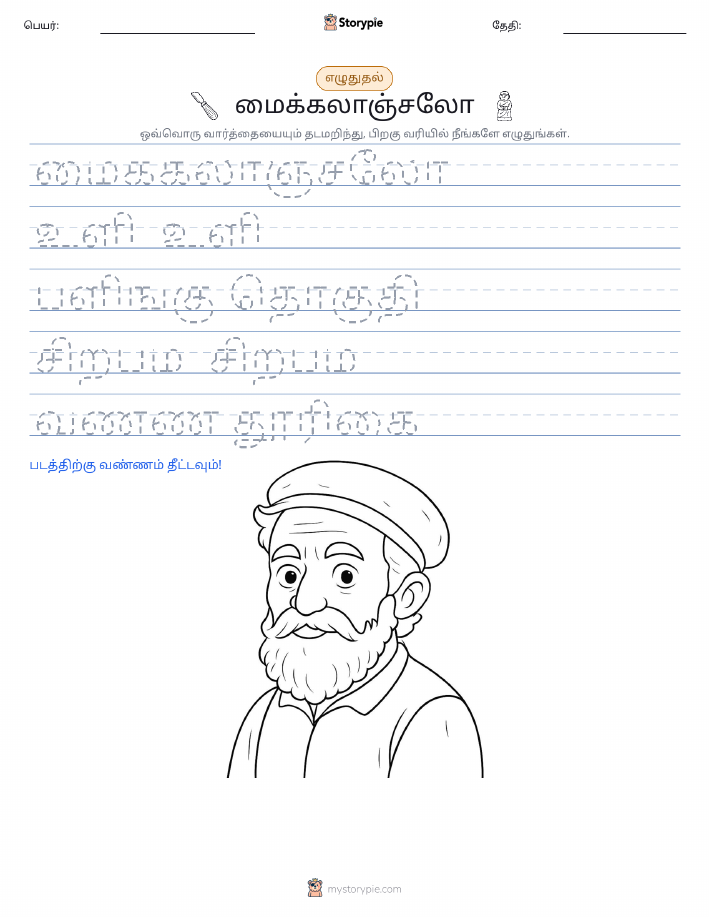 பெயர்: Storypie தேதி:
எழுதுதல்
மைக்கலாஞ்சலோ
ஒவ்வொரு வார்த்தையையும் தடமறிந்து, பிறகு வரியில் நீங்களே எழுதுங்கள்.
மைககலாஞசலோ
உளி உளி
பளிஙகு தொகுதி
சிறபம சிறபம
வணண தூரிகை
படத்திற்கு வண்ணம் தீட்டவும்!
mystorypie.com